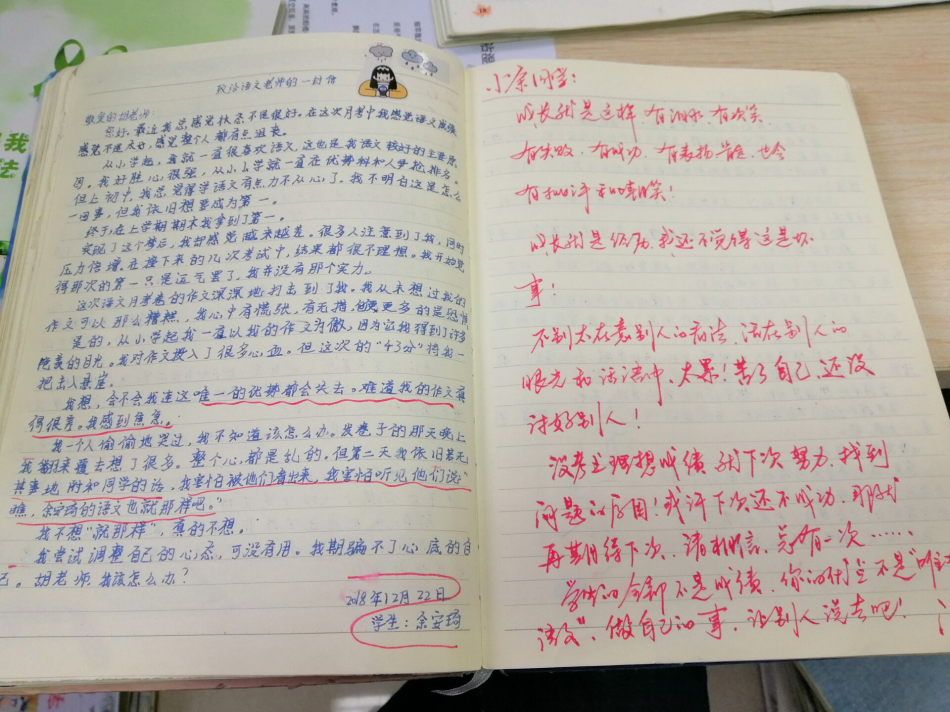 致语文老师的一封信
敬爱的胡老师：
您好。最近我总感觉状态不是很好。在这次月考中我感觉语文成绩
感觉不是太好，感觉整个人都有点迷茫。
从小学起，我就一直很喜欢语文，这也是我语文较好的主要原
因。我好胜心很强，从小小学就一直在优势科和人争抢排名。
但上初中，我总觉得学语文有点力不从心了。我不明白这是怎么
一回事，但我依旧想要成为第一。
终于，在上学期期末我拿到了第一。
实现了这个梦后，我却感觉越来越差。很多人注意到了我，同时
压力倍增。在接下来的几次考试中，结果都很不理想。我开始觉
得那次的第一只是运气罢了，我并没有那个实力。
这次语文月考卷的作文深深地打击到了我。我从未想过我的
作文可以那么糟糕，我心中有慌张，有无措，但更多的是恐惧
是的，从小学起我一直以我的作文为傲，因为它我得到了许多
羡的目光。我对作文投入了很多心血。但这次的“43分”将我一
把击入悬崖。
我想，会不会我连这唯一的优势都会失去。难道我的作文真
得很差。我感到焦急。
我一个人偷偷地哭过，我不知道该怎么办。发卷子的那天晚上
我翻来覆去想了很多。整个心都是乱的。但第二天我依旧若无
其事地和同学们说话，我害怕被他们看出来，我害怕听见他们说“
瞧，余安琦的语文也就那样吧。”
我不想“就那样”，真的不想。
我尝试调整自己的心态，可没有用。我欺骗不了心底的自
己。胡老师我该怎么办？
2018年12月22日
学生：余安琦
小余同学：
成长就是这样，有泪水，有欢笑
有失败，有成功，有表扬肯定，也会
有批评和嘲笑！
成长就是经历，我还不觉得这是坏
事！
不别太在意别人的看法，活在别人的
眼光和话语中，太累！苦了自己，还没
讨好别人！
没考出理想成绩，就下次努力，找到
问题的原因！或许下次还不成功，那就
再期待下次，请相信，总有一次……
学生的全部不是成绩，你的
语文”，做自己的事，让别人说去吧！